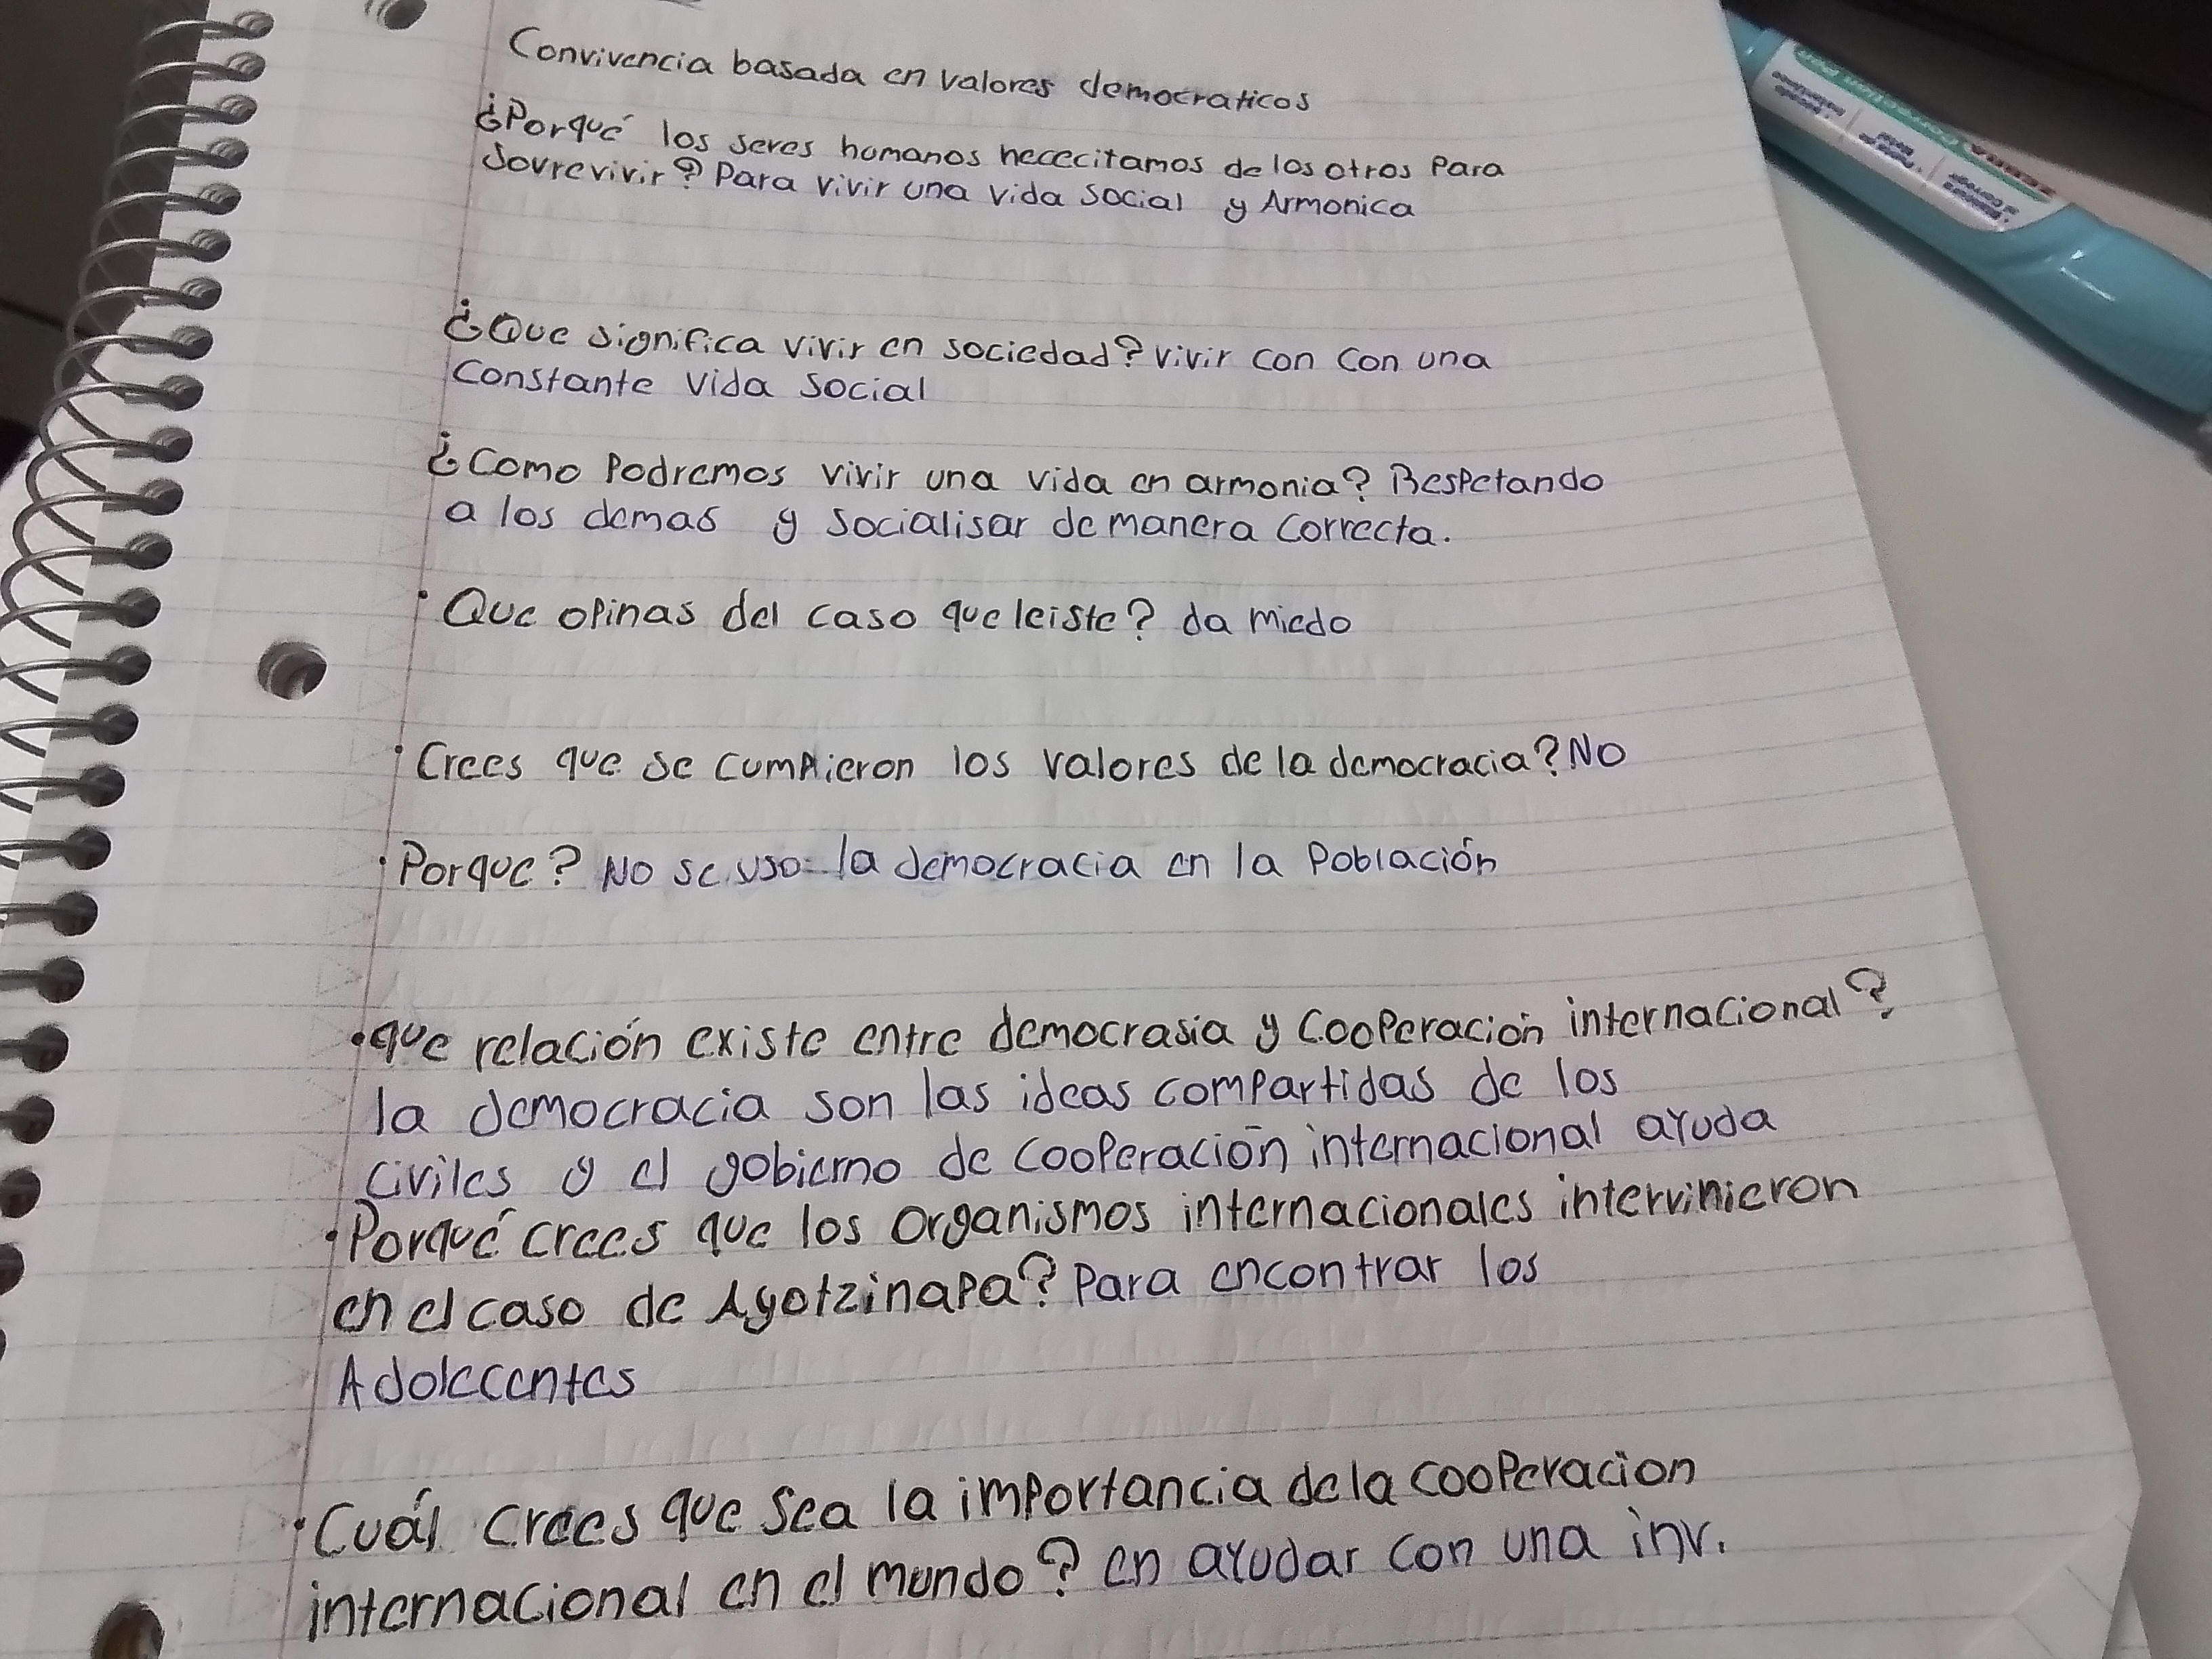 Convivencia basada en valores democraticos
¿Porqué los seres humanos hececitamos de los otros Para
Sovrevivir? Para vivir una vida social y Armonica
¿Que significa vivir en sociedad? vivir con con una
Constante vida social
¿Como Podremos vivir una vida en armonia? Respetando
a los demas y socialisar de manera correcta.
· Que opinas del caso que leiste? da miedo
· Crees que se cumplieron los valores de la democracia? No
· Porque? No se uso la democracia en la Población
· que relación existe entre democrasia y Cooperación internacional?
la democracia son las ideas compartidas de los
civiles y el gobierno de cooperación internacional ayuda
· Porqué crees que los organismos internacionales intervinieron
en el caso de Ayotzinapa? Para encontrar los
Adolecentes
· Cuál crees que sea la importancia de la cooperacion
internacional en el mundo? en ayudar con una inv.